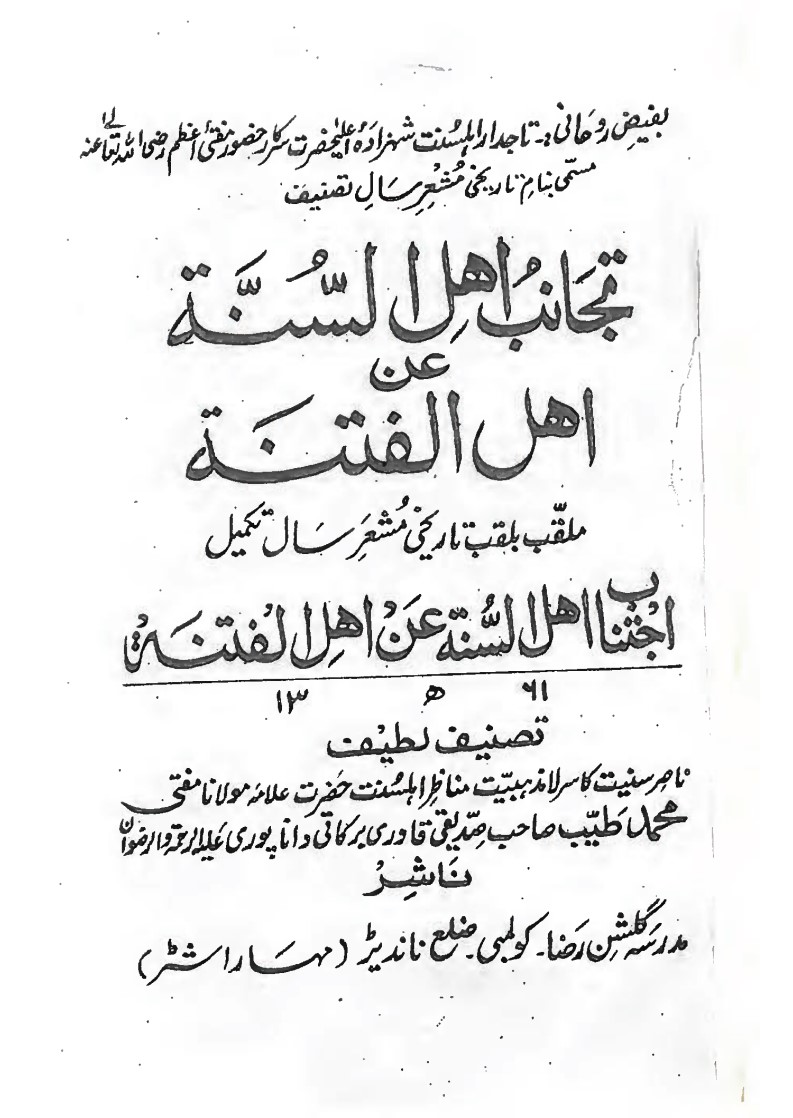 بفیضِ روحانی :۔ تاجدارِ اہلسُنت شہزادۂ اعلیٰحضرت سرکار حضور مفتیٔ اعظم رضی اللہ تعالےٰ عنہ
مسمّٰی بنامِ تاریخی مُشعِرِ سَالِ تصنیف
تجَانبُ اھلِ السُّنَّة
عن
اھل الفتنَة
ملقّب بلقب تاریخی مُشعَرِ سَال تکمیل
اجْتنابِ اھل السُّنّة عَنْ اھلِ الفُتنَةْ
۱۳ ھ ۶۱
تصنیف لطیف
ناصرِ سنیت کاسرِ لامذہبیّت مناظرِ اہلسُنت حَضرت علامہ مولانا مفتی
محمد طیّب صاحب صِدّیقی قادری برکاتی داناپوری عَلیہ الرحمۃ والرضوان
نَاشِرْ
مدرسَہ گلشنِ رَضا۔ کولمبی۔ ضلع ناندیڑ (مہَاراشٹر)